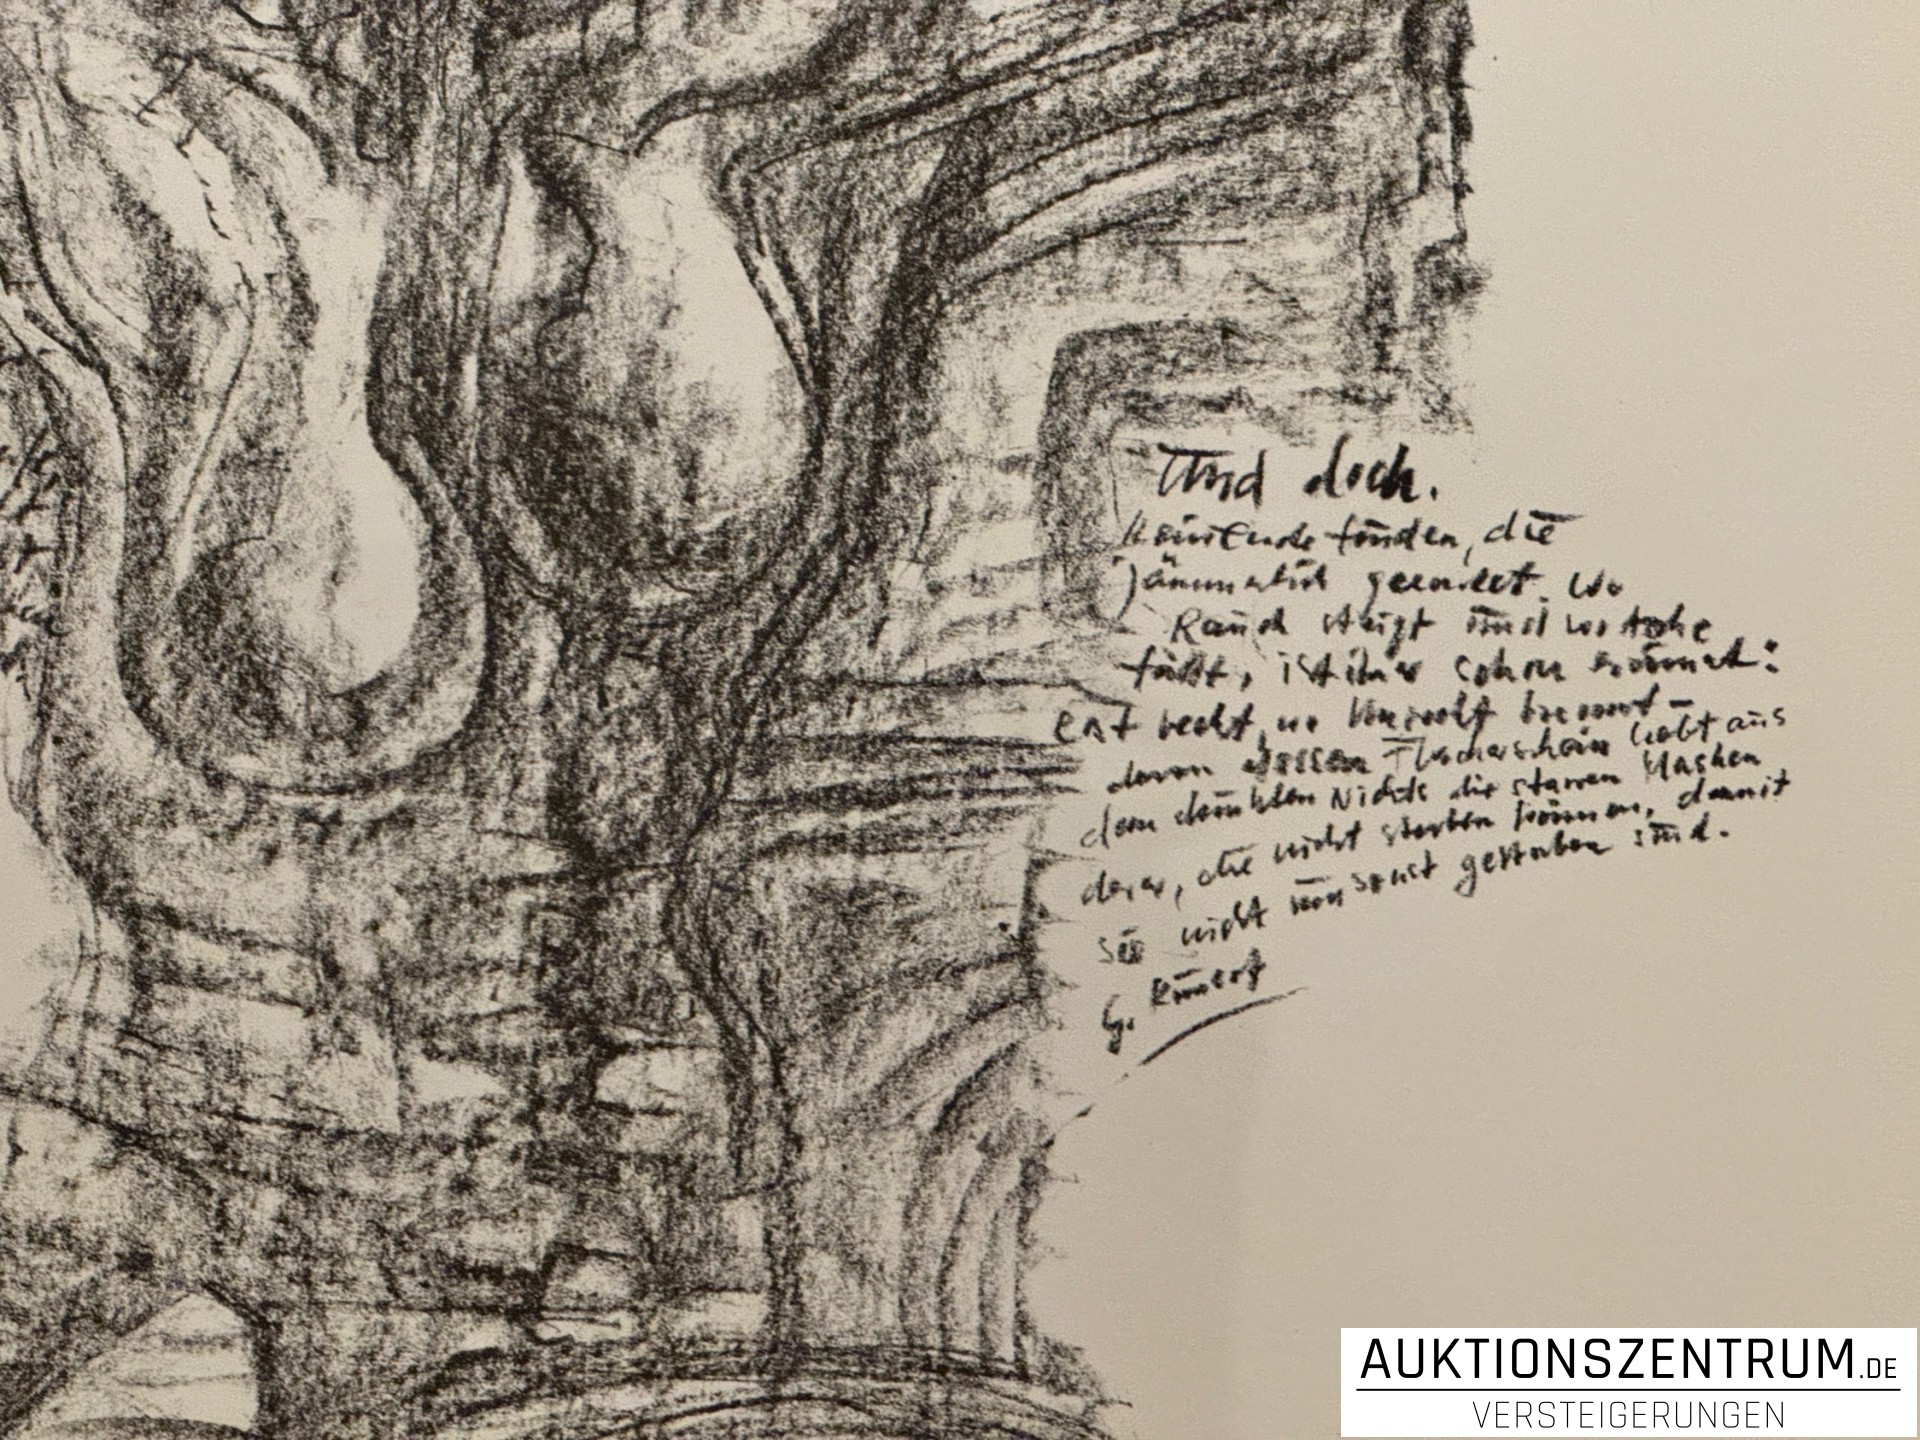 Und doch.
kein Ende fänden, die
jämmerlich geendet. Wo
Rauch steigt und wo Asche
fällt, ist ihrer schon
erst recht, wo Unrecht brennt –
denn dessen Flackerschein hebt aus
dem dunklen Nichts die starren Masken
derer, die nicht sterben können, damit
sie nicht umsonst gestorben sind.
G. Kunert
AUKTIONSZENTRUM.DE
VERSTEIGERUNGEN